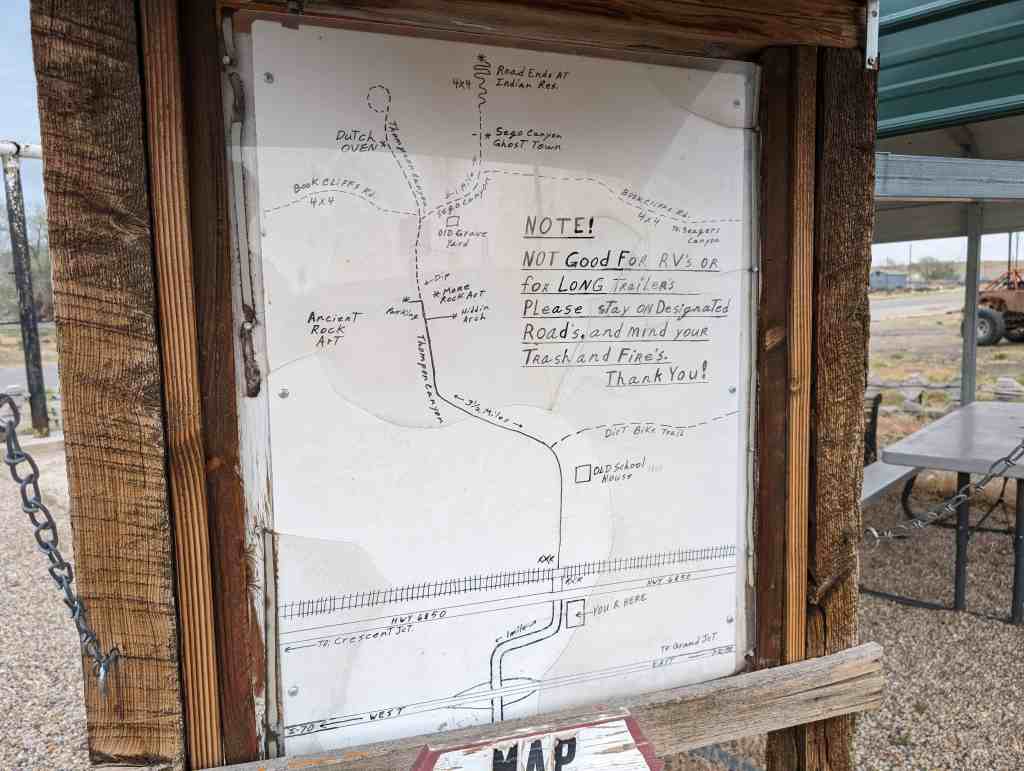 Road Ends AT
Indian Res.
4x4
DUTCH
OVEN
Thompson Canyon
* Sego Canyon
Ghost Town
Sego Canyon
BOOK CLIFFS Rd.
4x4
BOOK CLIFFS Rd.
4x4
To Seagers
Canyon
OlD Grave
Yard
NOTE!
NOT Good For RV's OR
for LONG Trailers
Please stay on Designated
Road's, and mind your
Trash and Fire's.
Thank You!
Dip
* More
Rock Art
Parking
Hiddin
Arch
Ancient
Rock
Art
Thompson Canyon
3½ Miles
Dirt Bike Trail
OLD School
House
RXR
RXR
HWY 6&50
HWY 6&50
YOU R HERE
TO, Crescent Jct.
1 mile
To Grand Jct
EAST
I-70
WEST
MAP